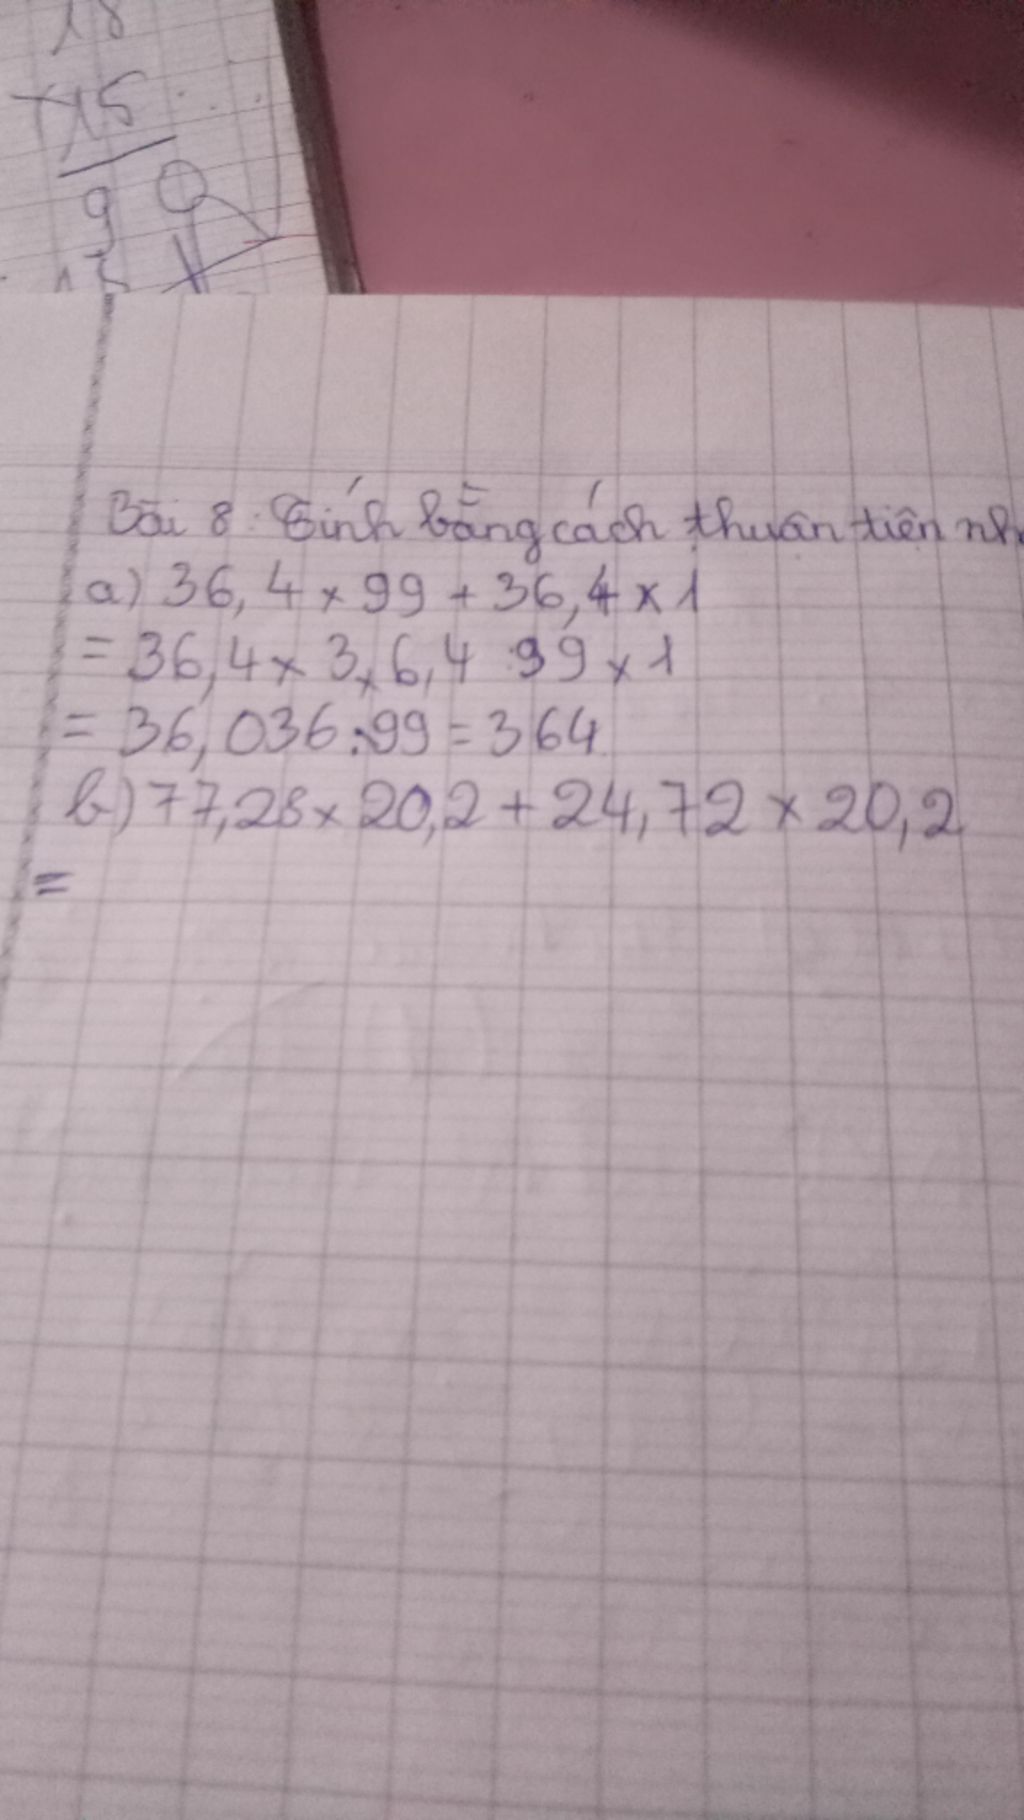 18
×15
9
Bài 8: Tính bằng cách thuận tiện nh
a) 36,4 × 99 + 36,4 × 1
= 36,4 × 3,6,4 99 × 1
= 36,036:99 = 364
b) 77,28 × 20,2 + 24,72 × 20,2
=